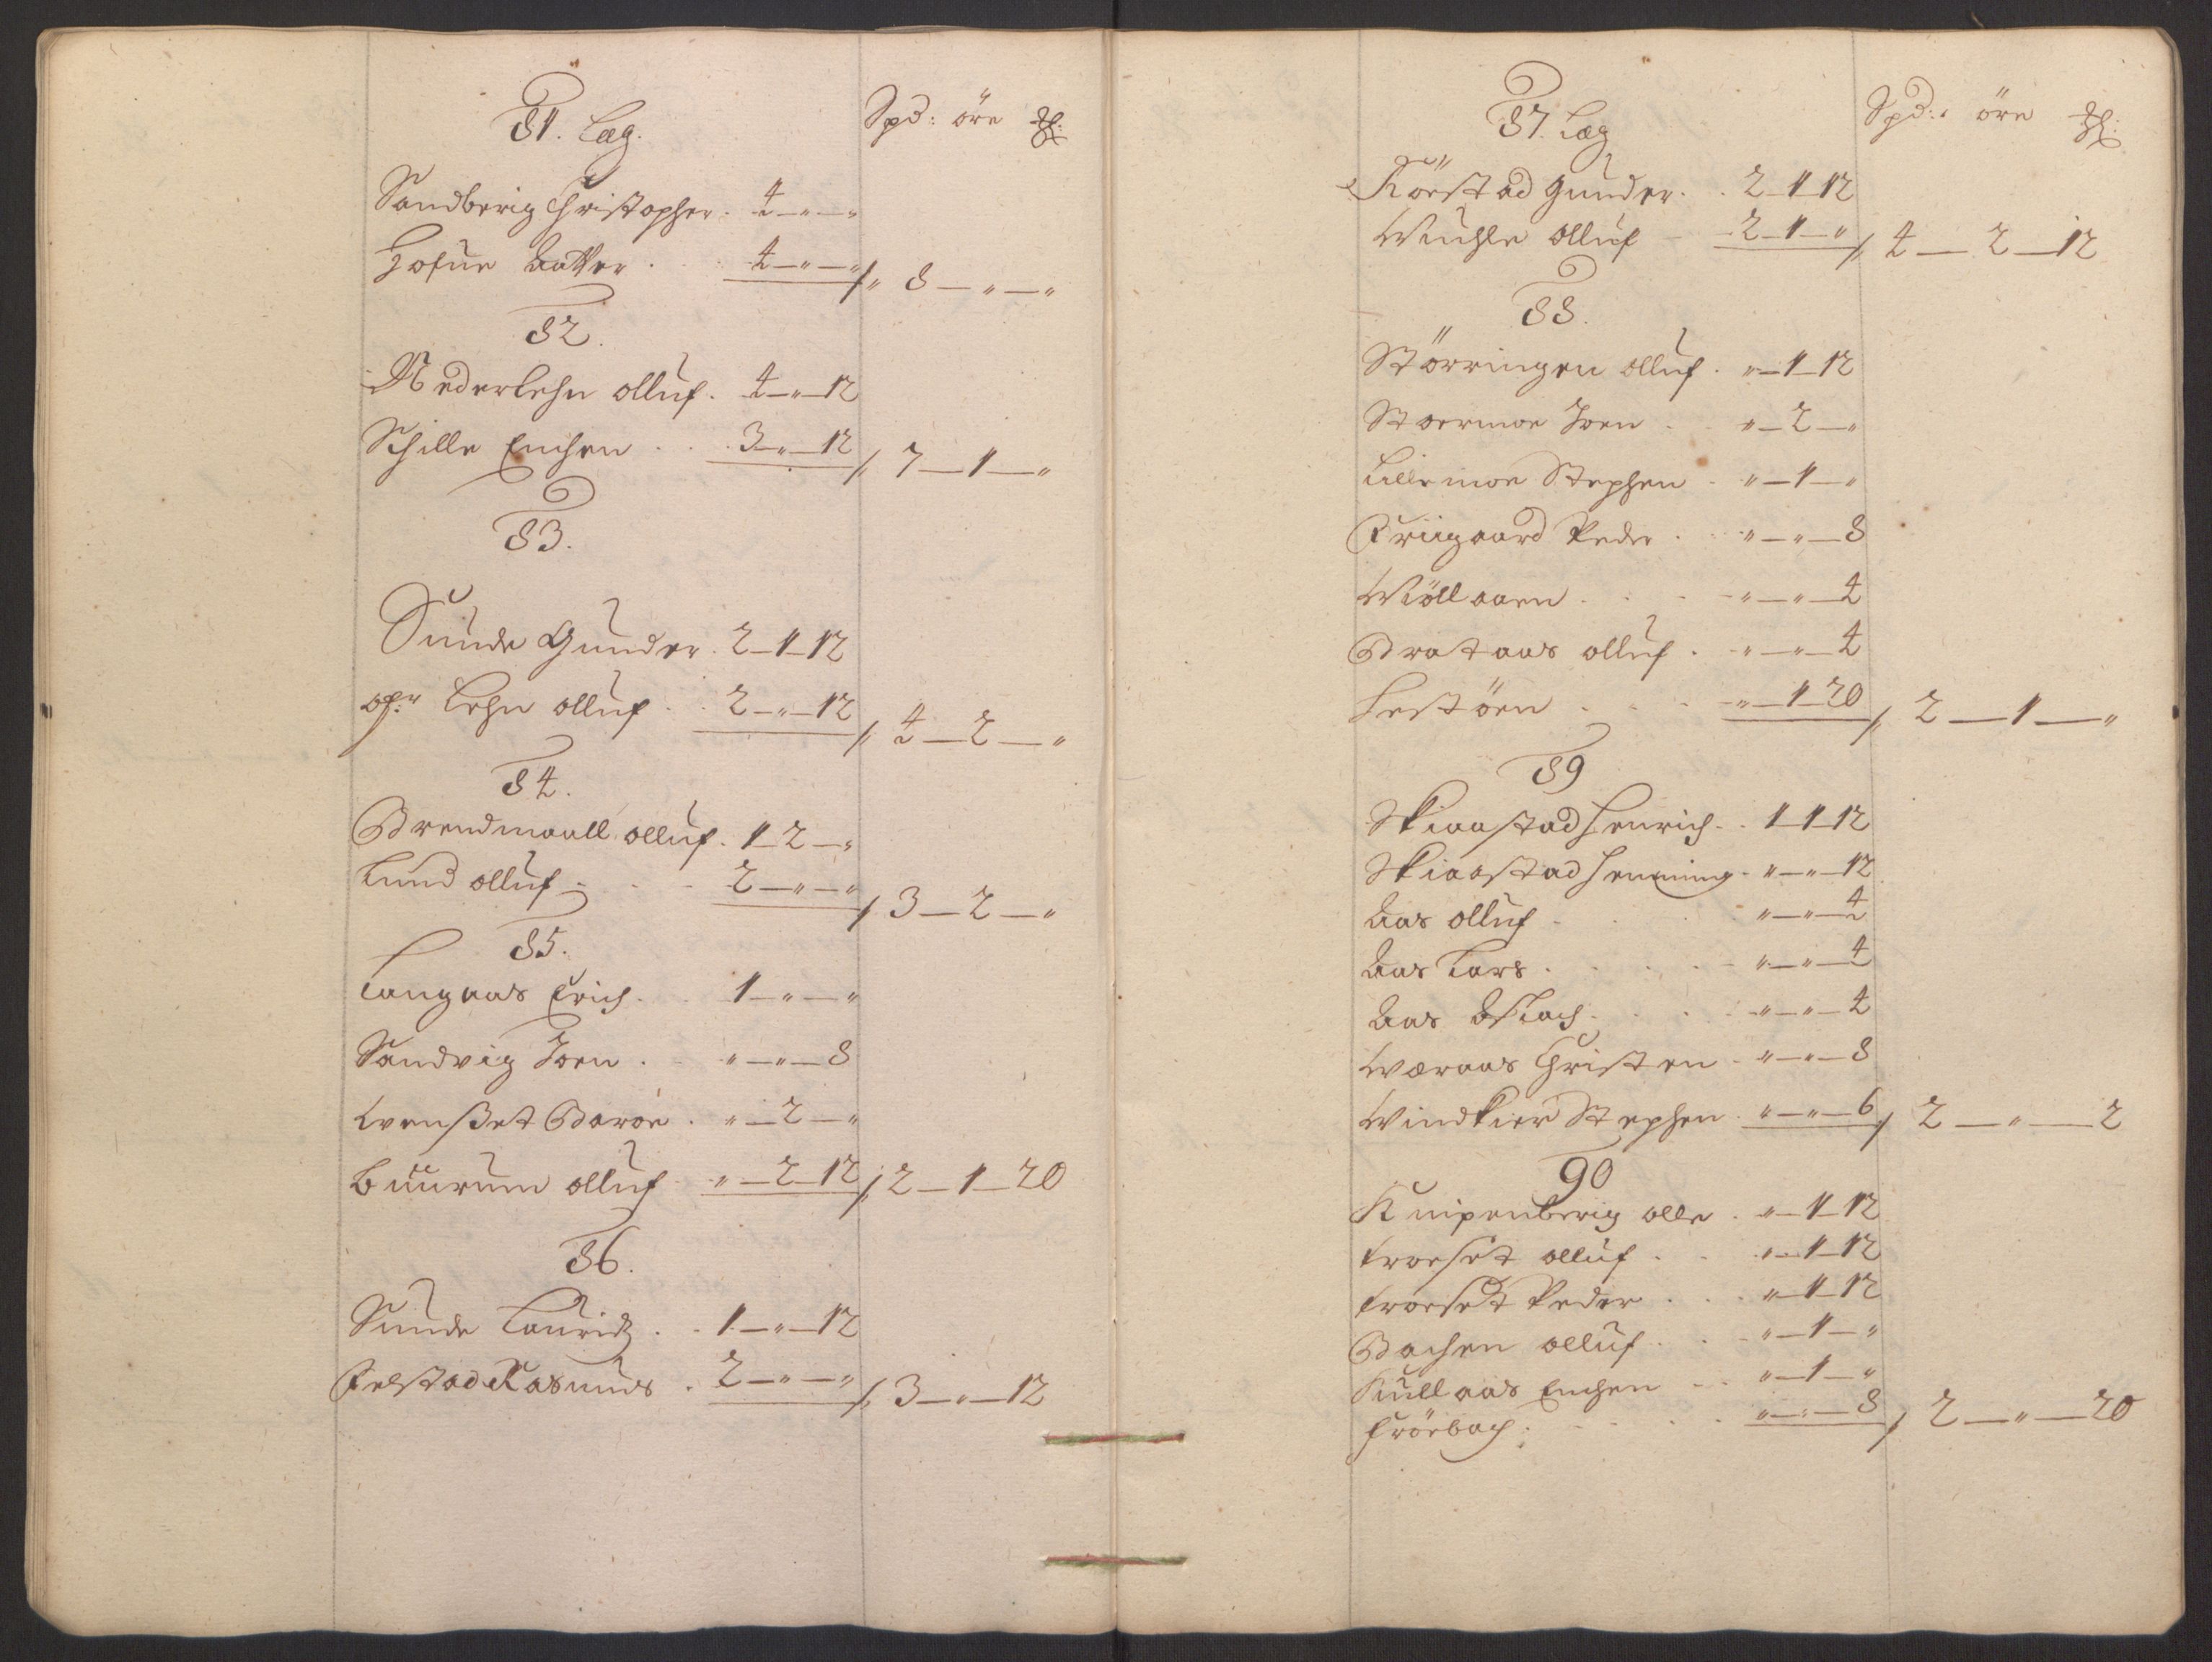 81. Læg. Spd: öre ₰:
Sandberig Christopher. 4 — „ — „
Hofue Aatter . . 4 — „ — „ // „ 8 — „ — „
82.
Nederlehn olluf. 4 — „ — 12
Schille Enchen . . 3 — „ — 12 // 7 — 1 — „
83.
Sunde Gunder. 2 — 1 — 12
ofr: Lehn olluf . . 2 — „ — 12 // 4 — 2 — „
84.
Brendmaall olluf. 1 — 2 — „
Lund olluf . . . 2 — „ — „ // 3 — 2 — „
85.
Langaas Erich. . 1 — „ — „
Sandvig Joen . . „ — „ — 8
Wensset Baroe . „ — 2 — „
Buurum olluf . „ — 2 — 12 // 2 — 1 — 20
86.
Sunde Lauridz . . 1 — „ — 12
Felstad Rasmus . 2 — „ — „ // 3 — „ — 12
87. Læg Spd: öre ₰:
Körstad Gunder. . 2 — 1 — 12
Wiuhle olluf - 2 — 1 — „ // 4 — 2 — 12
88.
Störringen olluf. „ — 1 — 12
Stoermoe Joen . . „ — 2 — „
Lillemoe Stephen . „ — 1 — „
Friigaard Peder . . „ — „ — 8
Wiöllaaen . . . „ — „ — 4
Brataas olluf . „ — „ — 4
Lestöen . . . „ — 1 — 20 // 2 — 1 — „
89
Skiaastad Henrich. . 1 — 1 — 12
Skiaastad Henning. „ — „ — 12
Aas olluf . . . „ — „ — 4
Aas Lars . . . „ — „ — 4
Aas Aslach . . . „ — „ — 4
Wæraas Christen . „ — „ — 8
Windkier Stephen . „ — „ — 6 / 2 — „ — 2
90
Knipenberig olle . „ — 1 — 12
Froeset olluf . . „ — 1 — 12
Froeset Peder . . . „ — 1 — 12
Bachen olluf . . „ — 1 — „
Kiullaas Enchen . . „ — 1 — „
Frörbach . . . . „ — „ — 8 / 2 — „ — 20